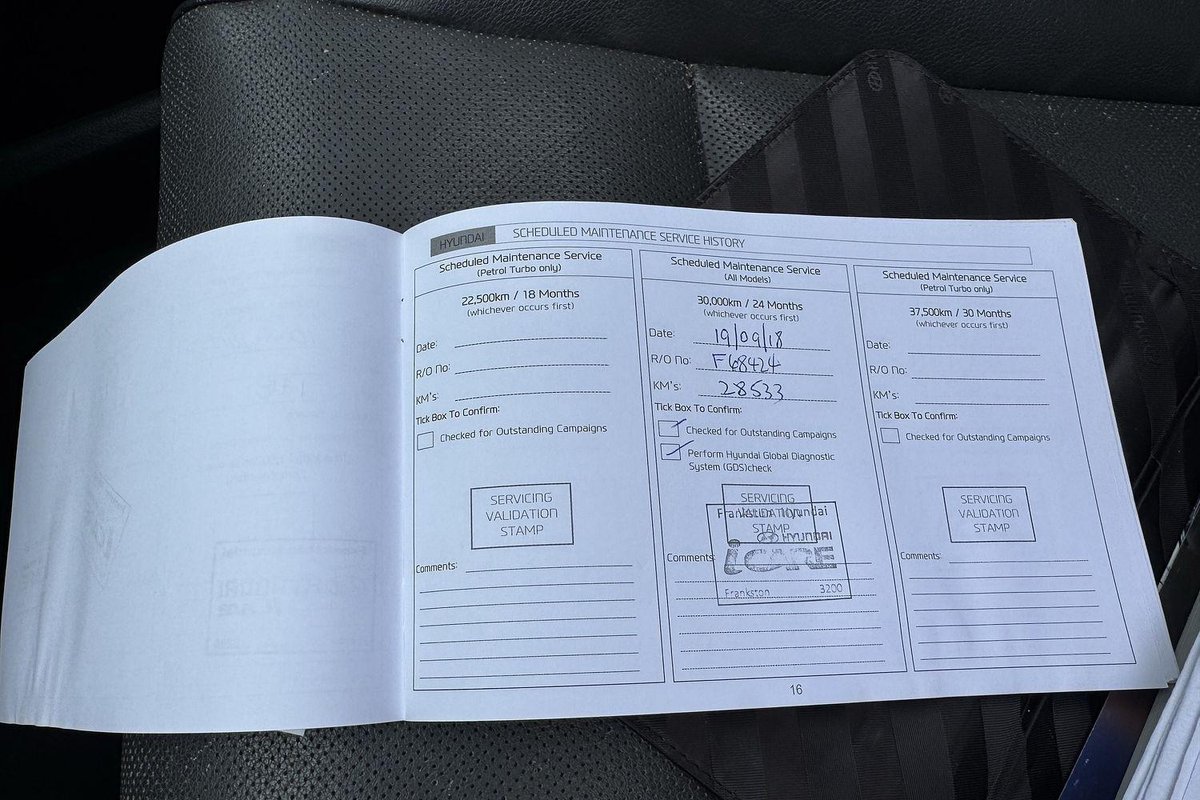 HYUNDAI SCHEDULED MAINTENANCE SERVICE HISTORY
Scheduled Maintenance Service
(Petrol Turbo only)
22,500km / 18 Months
(whichever occurs first)
Date:
R/O No:
KM's:
Tick Box To Confirm:
Checked for Outstanding Campaigns
SERVICING
VALIDATION
STAMP
Comments:
Scheduled Maintenance Service
(All Models)
30,000km / 24 Months
(whichever occurs first)
Date: 19/09/18
R/O No: F68424
KM's: 28533
Tick Box To Confirm:
Checked for Outstanding Campaigns
Perform Hyundai Global Diagnostic
System (GDS)check
SERVICING
VALIDATION
STAMP
Frankston Hyundai
HYUNDAI
iCARE
Frankston 3200
Comments:
Scheduled Maintenance Service
(Petrol Turbo only)
37,500km / 30 Months
(whichever occurs first)
Date:
R/O No:
KM's:
Tick Box To Confirm:
Checked for Outstanding Campaigns
SERVICING
VALIDATION
STAMP
Comments:
16